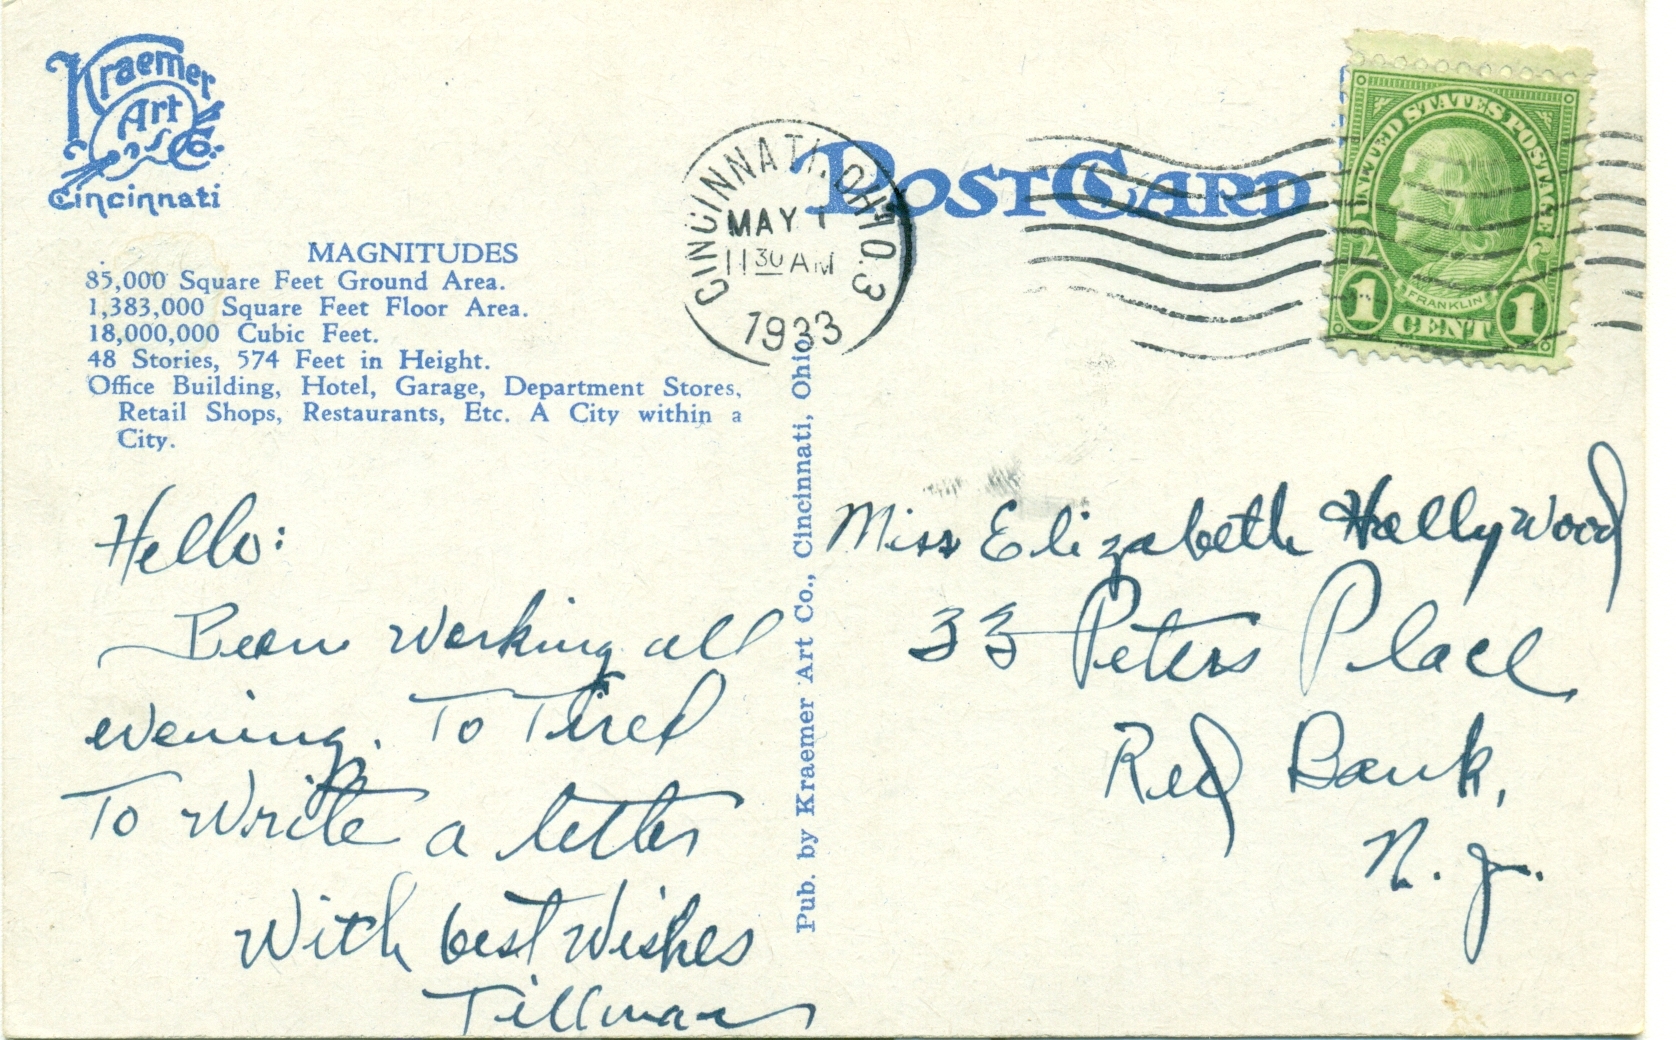 Kraemer
Art
& Co.
Cincinnati
MAGNITUDES
85,000 Square Feet Ground Area.
1,383,000 Square Feet Floor Area.
18,000,000 Cubic Feet.
48 Stories, 574 Feet in Height.
Office Building, Hotel, Garage, Department Stores,
Retail Shops, Restaurants, Etc. A City within a
City.
Hello:
Been working all
evening. To Tired
To Write a letter
With best Wishes
Tillman
Pub. by Kraemer Art Co., Cincinnati, Ohio.
POST CARD
CINCINNATI, OHIO. 3
MAY 1
11 30 AM
1933
UNITED STATES POSTAGE
FRANKLIN
1 CENT 1
Miss Elizabeth Hollywood
33 Peters Place
Red Bank,
N. J.